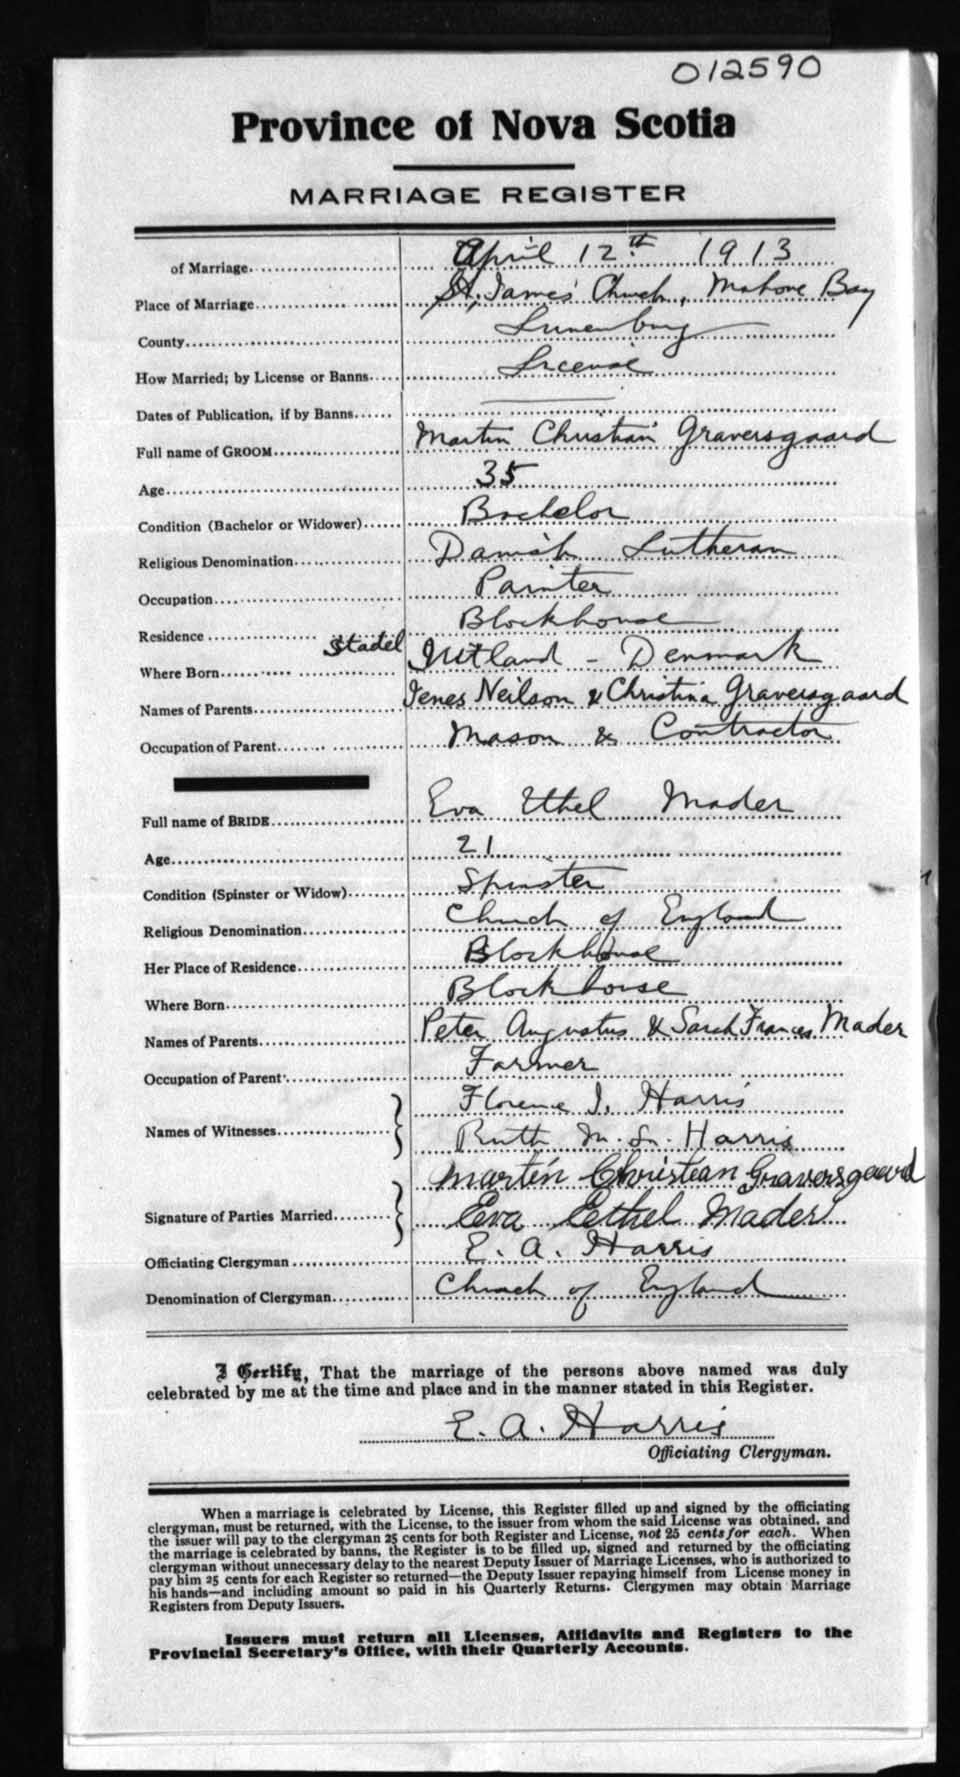 012590
Province of Nova Scotia
MARRIAGE REGISTER
of Marriage April 12th 1913
Place of Marriage St. James' Church, Mahone Bay
County Lunenburg
How Married; by License or Banns License
Dates of Publication, if by Banns
Full name of GROOM Martin Christian Graversgaard
Age 35
Condition (Bachelor or Widower) Bachelor
Religious Denomination Danish Lutheran
Occupation Painter
Residence Blockhouse
Where Born Stadel Jutland - Denmark
Names of Parents Jenes Neilson & Christina Graversgaard
Occupation of Parent Mason & Contractor
Full name of BRIDE Eva Ethel Mader
Age 21
Condition (Spinster or Widow) Spinster
Religious Denomination Church of England
Her Place of Residence Blockhouse
Where Born Blockhouse
Names of Parents Peter Augustus & Sarah Frances Mader
Occupation of Parent Farmer
Names of Witnesses Florence I. Harris
Ruth M. L. Harris
Signature of Parties Married Martin Christian Graversgaard
Eva Eethel Mader
Officiating Clergyman E. A. Harris
Denomination of Clergyman Church of England
I Certify, That the marriage of the persons above named was duly
celebrated by me at the time and place and in the manner stated in this Register.
E. A. Harris
Officiating Clergyman.
When a marriage is celebrated by License, this Register filled up and signed by the officiating
clergyman, must be returned, with the License, to the issuer from whom the said License was obtained, and
the issuer will pay to the clergyman 25 cents for both Register and License, not 25 cents for each. When
the marriage is celebrated by banns, the Register is to be filled up, signed and returned by the officiating
clergyman without unnecessary delay to the nearest Deputy Issuer of Marriage Licenses, who is authorized to
pay him 25 cents for each Register so returned—the Deputy Issuer repaying himself from License money in
his hands—and including amount so paid in his Quarterly Returns. Clergymen may obtain Marriage
Registers from Deputy Issuers.
Issuers must return all Licenses, Affidavits and Registers to the
Provincial Secretary's Office, with their Quarterly Accounts.